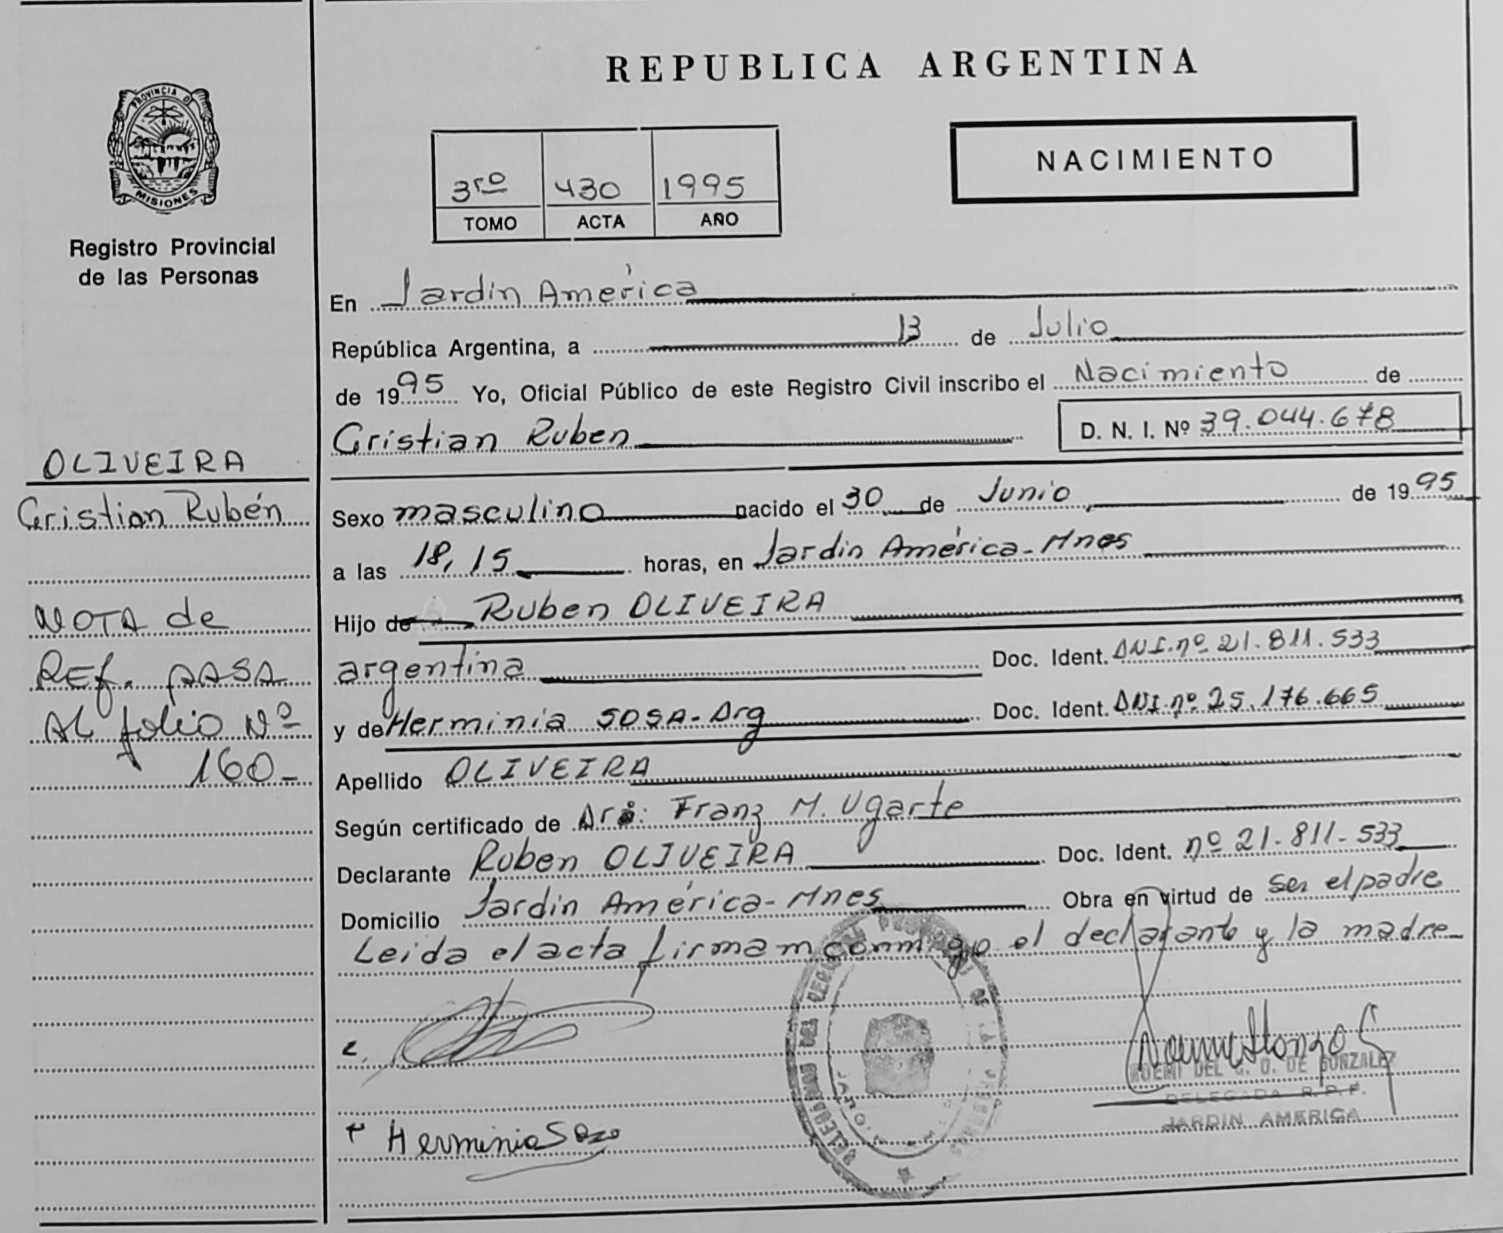 REPUBLICA ARGENTINA
PROVINCIA DE MISIONES
Registro Provincial
de las Personas
3ro 430 1995
TOMO ACTA AÑO
NACIMIENTO
En Jardin América
República Argentina, a 13 de Julio
de 1995 Yo, Oficial Público de este Registro Civil inscribo el Nacimiento de
Cristian Ruben D. N. I. Nº 39.044.678
OLIVEIRA
Cristian Rubén
Sexo masculino nacido el 30 de Junio de 1995
a las 18,15 horas, en Jardin América-Mnes
NOTA de
REf. PASA
AL folio Nº
160-
Hijo de Ruben OLIVEIRA
argentina Doc. Ident. DNI.nº 21.811.533
y de Herminia SOSA-Arg Doc. Ident. DNI.nº 25.176.665
Apellido OLIVEIRA
Según certificado de Dr.: Franz M. Ugarte
Declarante Ruben OLIVEIRA Doc. Ident. nº 21-811-533
Domicilio Jardin América-Mnes Obra en virtud de ser el padre
Leida el acta firman conmigo el declarante y la madre-
DE GONZALEZ
DELEGADA R.P.P.
JARDIN AMERICA
Herminia Soza